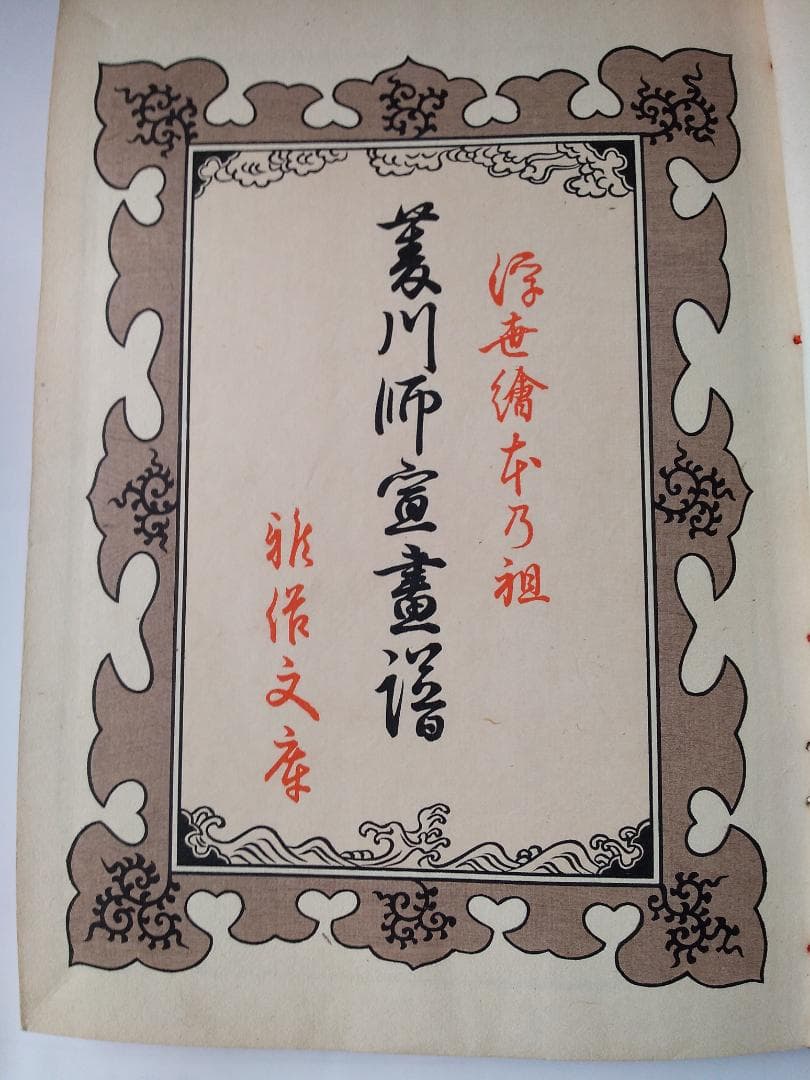 浮世繪本乃祖
菱川师宣畫譜
雅俗文庫